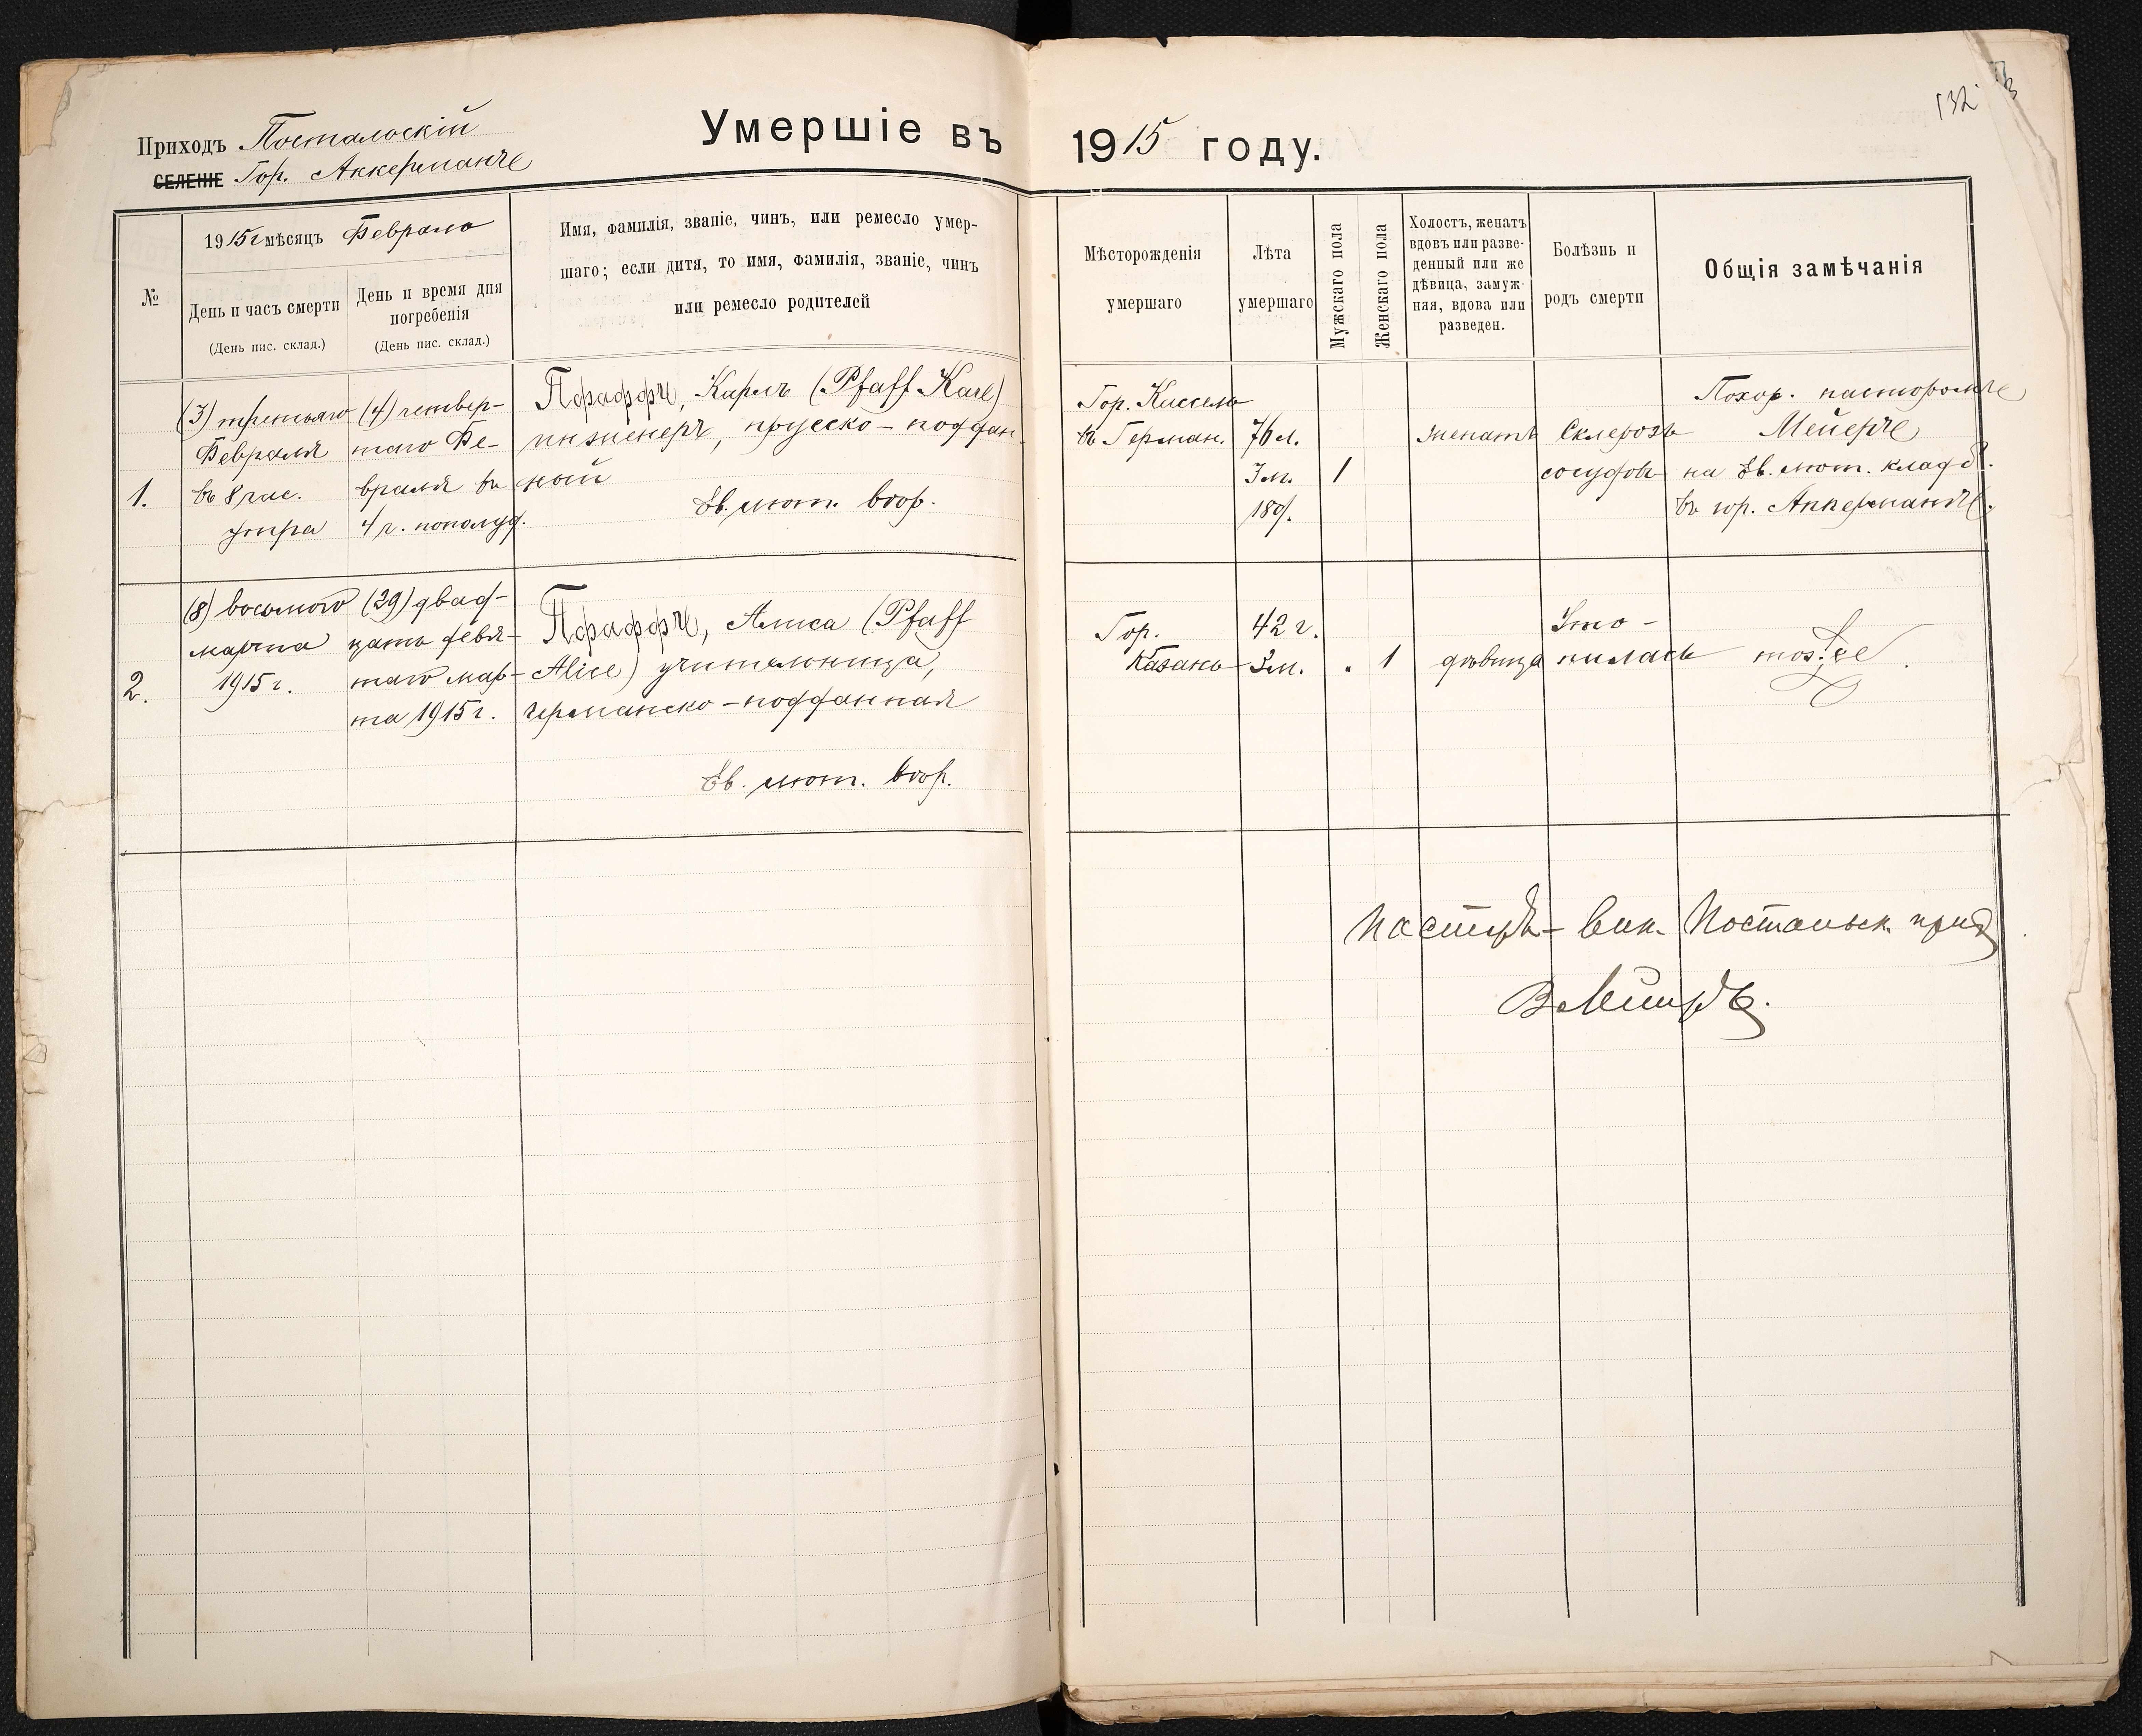 132
Приходъ Постальскій
СЕЛЕНІЕ Гор. Аккерманъ
Умершіе въ 1915 году.
№
1915 г мѣсяцъ Февраль
День и часъ смерти
(День пис. склад.)
День и время дня
погребенія
(День пис. склад.)
Имя, фамилія, званіе, чинъ, или ремесло умер-
шаго; если дитя, то имя, фамилія, званіе, чинъ
или ремесло родителей
Мѣсторожденія
умершаго
Лѣта
умершаго
Мужскаго пола
Женскаго пола
Холостъ, женатъ
вдовъ или разве-
денный или же
дѣвица, замуж-
няя, вдова или
разведен.
Болѣзнь и
родъ смерти
Общія замѣчанія
1.
(3) третьяго
Февраля
въ 8 час.
утра
(4) четвер-
таго Фе-
враля въ
4 ч. пополуд.
Пфаффъ, Карлъ (Pfaff Karl)
инженеръ, прусско-поддан-
ный
Ев. лют. вѣр.
Гор. Кассель
въ Герман.
76 л.
3 м.
18 д.
1
женатъ
Склерозъ
сосудовъ
Похор. пасторомъ
Мейеръ
на Ев. лют. кладб.
въ гор. Аккерманѣ.
2.
(8) восьмого
марта
1915 г.
(29) двад-
цать девя-
таго мар-
та 1915 г.
Пфаффъ, Алиса (Pfaff
Alice) учительница,
германско-подданная
Ев. лют. вѣр.
Гор.
Казань
42 г.
3 м.
1
дѣвица
Уто-
пилась
тоже.
Пасторъ-вик. Постальск. прих.